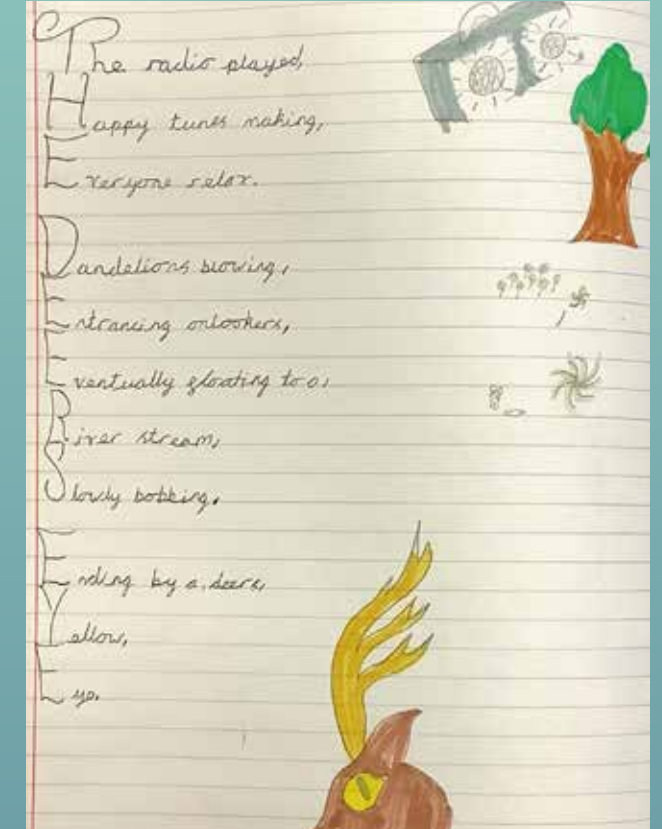 The radio played,
Happy tunes making,
Everyone relax.
Dandelions blowing,
Entrancing onlookers,
Eventually floating to a,
River stream,
Slowly bobbing,
Ending by a deers,
Yellow,
Eye.